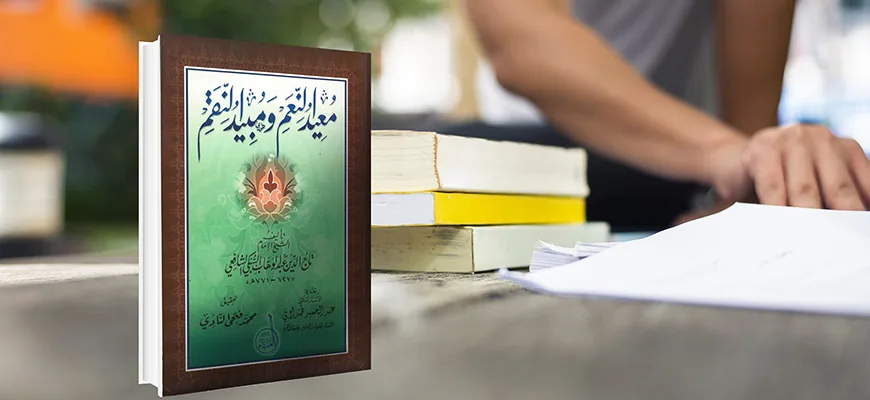 مُعِيدُ النِّعَمِ وَمُبِيدُ النِّقَمِ
تأليف
الشيخ الإمام
تاج الدين عبد الوهاب السبكي الشافعي
٧٢٧ - ٧٧١هـ
تحقيق
محمد فتحي النادي